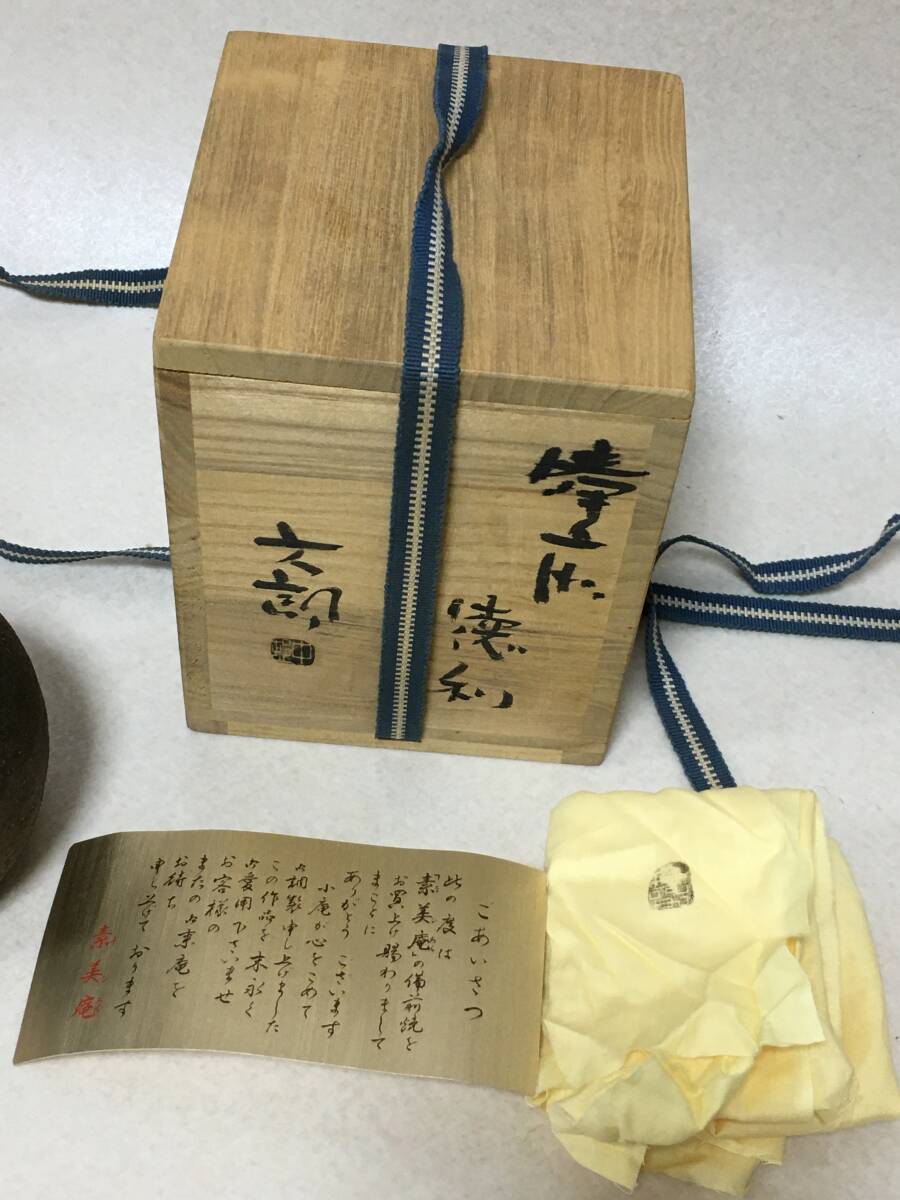 徳利
ごあいさつ
此の度は
「素美庵」の備前焼を
お買上げ賜わりまして
まことに
ありがとう ございます
小庵が心をこめて
御調製申し上げました
この作品を 末永く
御愛用下さいませ
お客様の
またの御来庵を
お待ち
申し上げて おります
素美庵